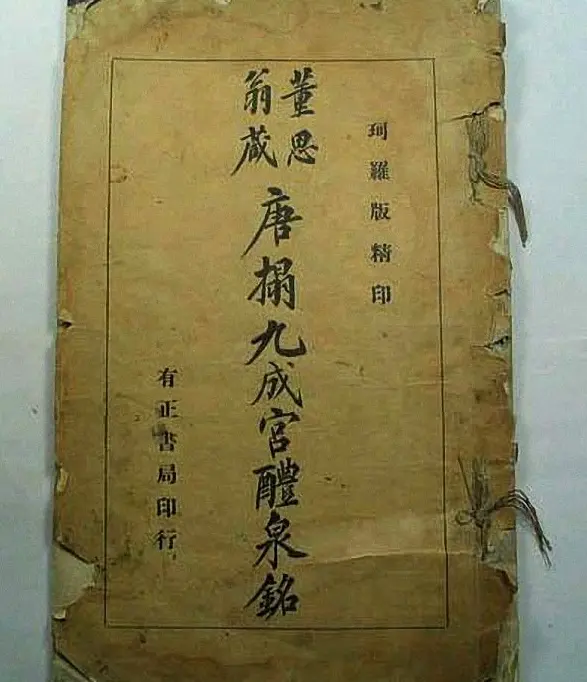 珂羅版精印
董思
翁藏
唐搨九成宮醴泉銘
有正書局印行